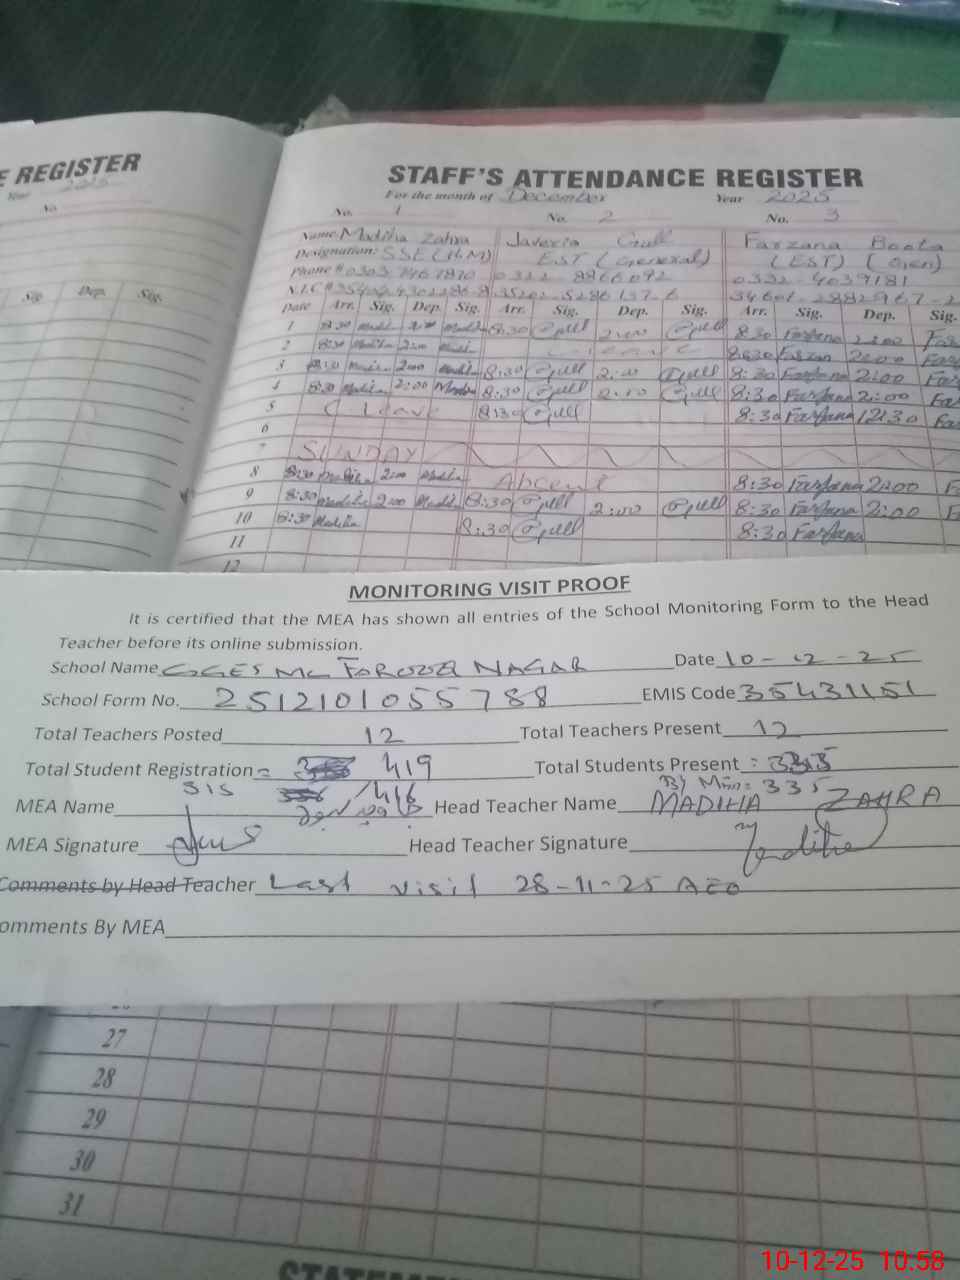 E REGISTER
Year 2025
No.
Sig. Dep. Sig.
STAFF'S ATTENDANCE REGISTER
For the month of December Year 2025
No. 1 No. 2 No. 3
Name Madiha Zahra Javeria Gull Farzana Boota
Designation: SSE (H.M) EST (General) (EST) (Gen)
Phone # 0322-8866092 0332-4039181
N.I.C #
Date Arr. Sig. Dep. Sig. Arr. Sig. Dep. Sig. Arr. Sig. Dep. Sig.
1 8:30 Madi 2:00 Madi 8:30 Gull 2:00 Gull 8:30 Farzana 2:00 Far
2 8:30 Madiha 2:00 Madi C leave 8:30 Farzan 2:00 Far
3 8:30 Madiha 2:00 Madiha 8:30 Gull 2:00 Gull 8:30 Farfana 2:00 Far
4 8:30 Madiha 2:00 Madiha 8:30 Gull 2:00 Gull 8:30 Farfana 2:00 Fa
5 C leave 8:30 Gull 8:30 Farfana 12:30 Fa
6
7 SUNDAY
8 8:30 Madiha 2:00 Madiha Abcent 8:30 Farfana 2:00 F
9 8:30 Madiha 2:00 Madi 8:30 Gull 2:00 Gull 8:30 Farfana 2:00 F
10 8:30 Madiha 8:30 Gull 8:30 Farfana
11
12
MONITORING VISIT PROOF
It is certified that the MEA has shown all entries of the School Monitoring Form to the Head
Teacher before its online submission.
School Name GGES MC FAROOQ NAGAR Date 10-12-25
School Form No. 2512101055788 EMIS Code 35431151
Total Teachers Posted 12 Total Teachers Present 12
Total Student Registration = 419 Total Students Present : 335
SIS /416 By Mon: 335
MEA Name Head Teacher Name MADIHA ZAHRA
MEA Signature Head Teacher Signature
Comments by Head Teacher Last visit 28-11-25 AEO
omments By MEA
27
28
29
30
31
STATEME
10-12-25 10.58